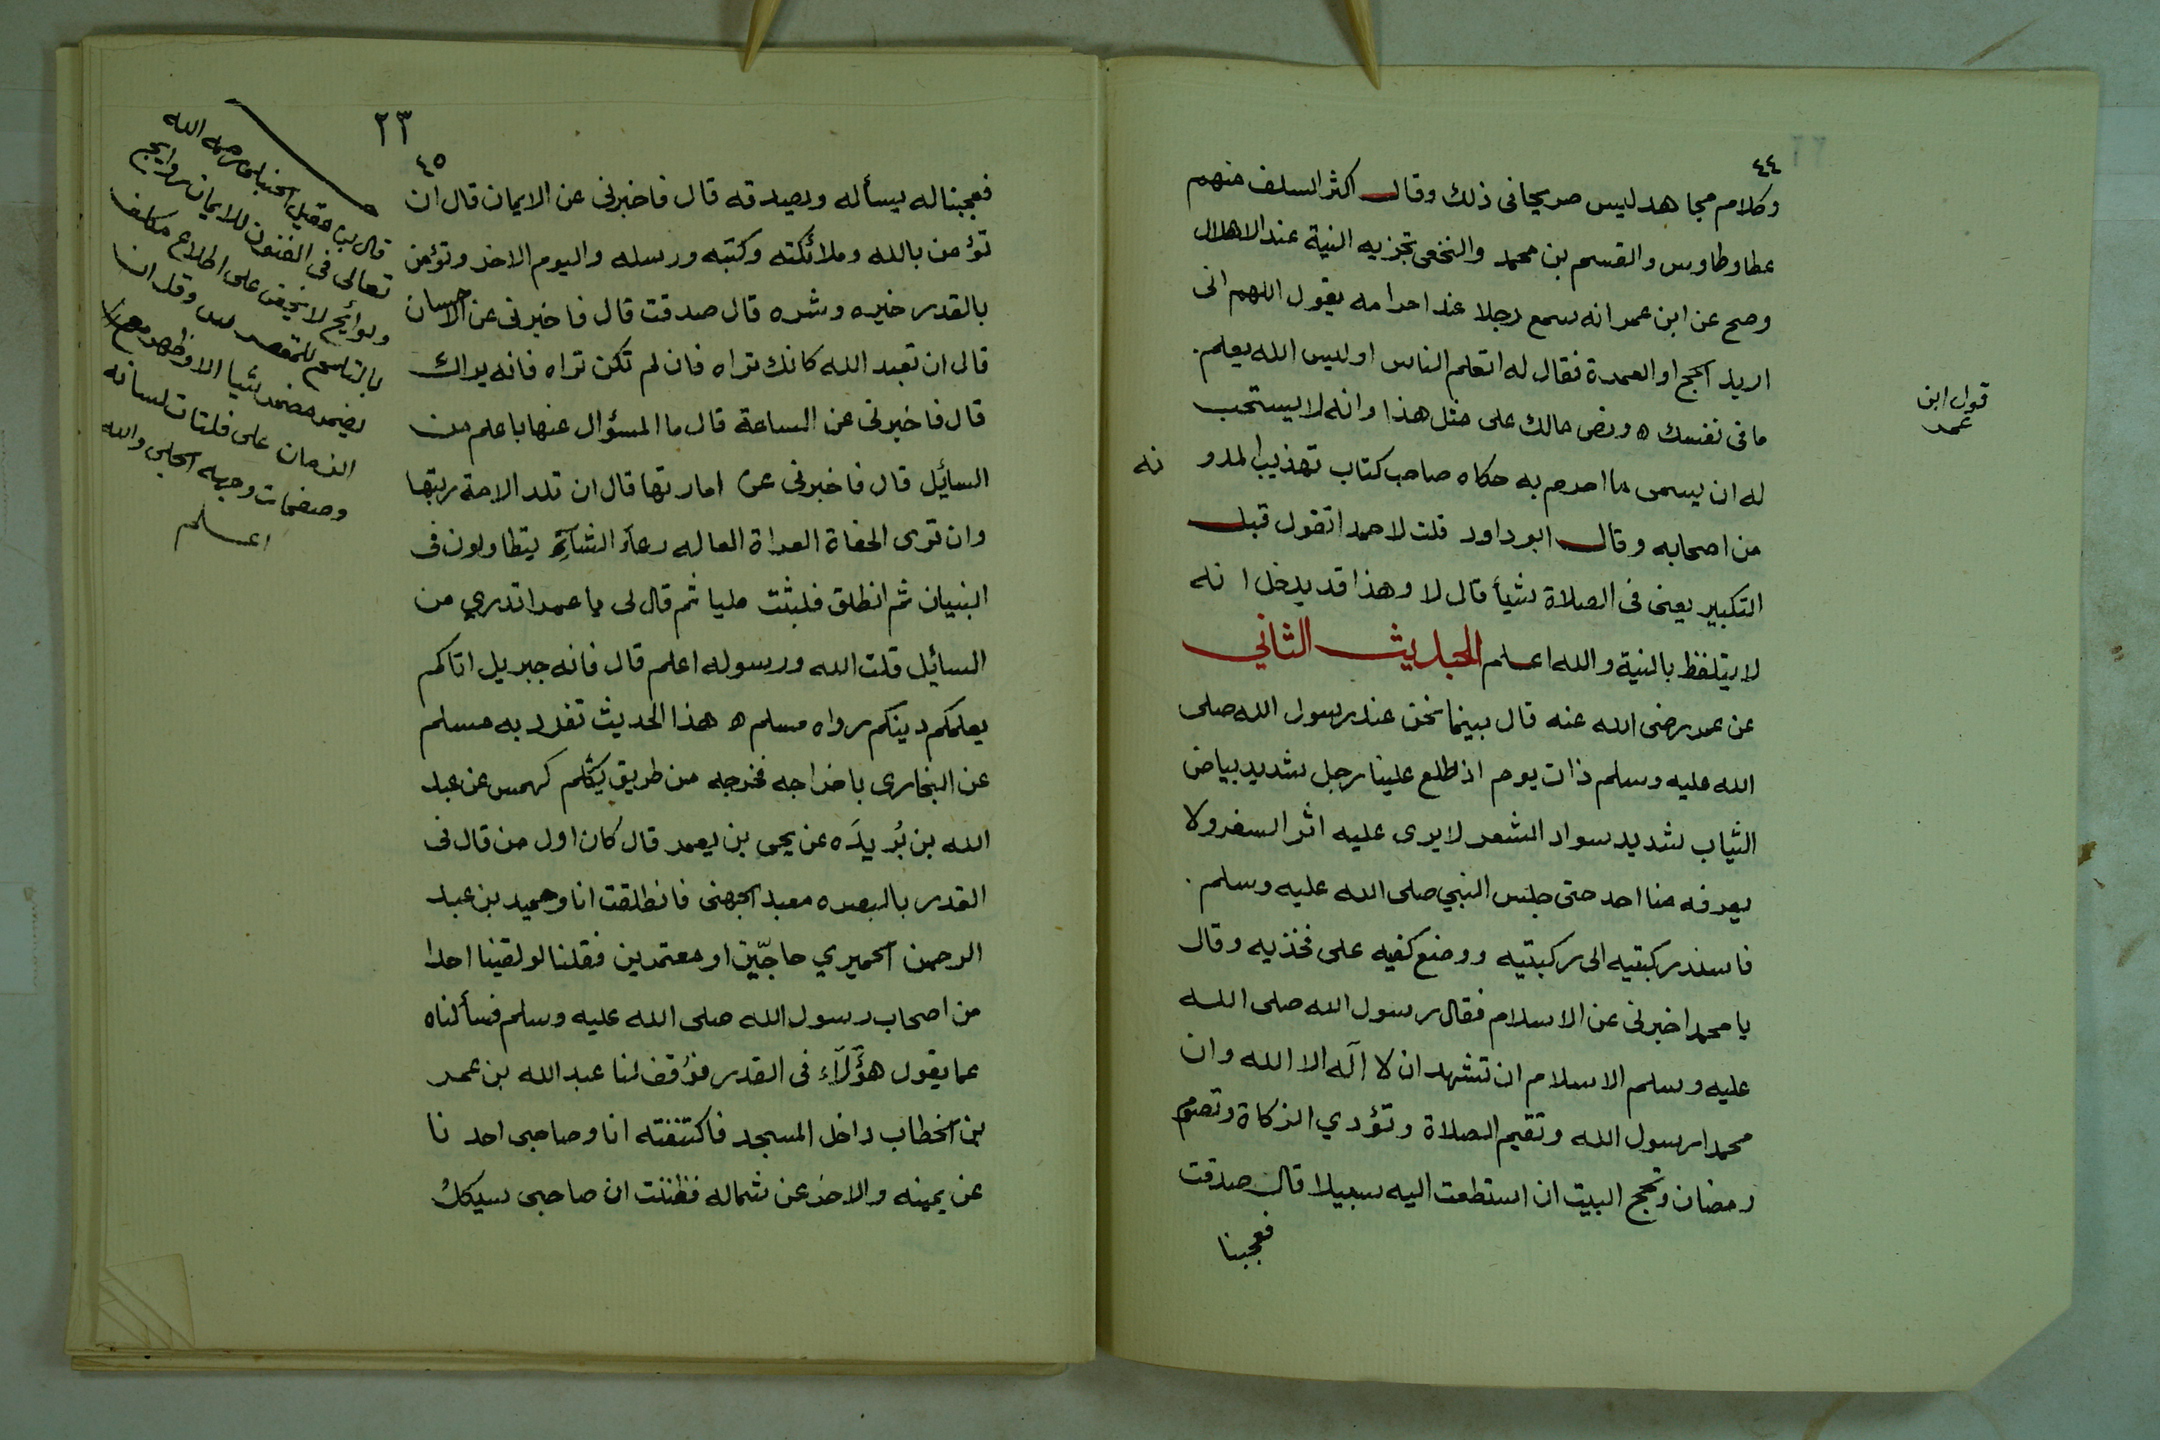 ٤٤
وكلام مجاهد ليس صريحا فى ذلك وقال اكثر السلف منهم
عطا وطاوس والقسم بن محمد والنخعى تجزيه النية عند الاهلال
وصح عن ابن عمر انه سمع رجلا عند احرامه يقول اللهم انى
اريد الحج او العمرة فقال له اتعلم الناس اوليس الله يعلم
ما فى نفسك ه ونص مالك على مثل هذا وانه لا يستحب
له ان يسمى ما احرم به حكاه صاحب كتاب تهذيب المدو نه
من اصحابه وقال ابو داود قلت لاحمد اتقول قبل
التكبير يعنى فى الصلاة شيأ قال لا وهذا قد يدخل انه
لا يتلفظ بالنية والله اعلم الحديث الثاني
عن عمر رضى الله عنه قال بينما نحن عند رسول الله صلى
الله عليه وسلم ذات يوم اذ طلع علينا رجل شديد بياض
الثياب شديد سواد الشعر لا يرى عليه اثر السفر ولا
يعرفه منا احد حتى جلس النبي صلى الله عليه وسلم .
فاسند ركبتيه الى ركبتيه ووضع كفيه على فخذيه وقال
يا محمد اخبرنى عن الاسلام فقال رسول الله صلى الله
عليه وسلم الاسلام ان تشهد ان لا اله الا الله وان
محمدا رسول الله وتقيم الصلاة وتؤدي الزكاة وتصوم
رمضان وتحج البيت ان استطعت اليه سبيلا قال صدقت
فعجبنا
قول ابن
عمر
٢٣
٤٥
فعجبنا له يسأله ويصدقه قال فاخبرنى عن الايمان قال ان
تؤمن بالله وملائكته وكتبه ورسله واليوم الاخر وتؤمن
بالقدر خيره وشره قال صدقت قال فاخبرنى عن الاحسان
قال ان تعبد الله كانك تراه فان لم تكن تراه فانه يراك
قال فاخبرنى عن الساعة قال ما المسؤال عنها باعلم من
السائل قال فاخبرنى عن امارتها قال ان تلد الامة ربتها
وان ترى الحفاة العراة العاله رعاء الشآء يتطاولون فى
البنيان ثم انطلق فلبثت مليا ثم قال لى يا عمر اتدري من
السائل قلت الله ورسوله اعلم قال فانه جبريل اتاكم
يعلمكم دينكم رواه مسلم ه هذا الحديث تفرد به مسلم
عن البخارى باخراجه فخرجه من طريق كهمس عن عبد
الله بن بُريدَه عن يحى بن يعمر قال كان اول من قال فى
القدر بالبصره معبد الجهنى فانطلقت انا وحميد بن عبد
الرحمن الحميري حاجّين او معتمرين فقلنا لو لقينا احدا
من اصحاب رسول الله صلى الله عليه وسلم فسألناه
عما يقول هؤلاء فى القدر فوُقف لنا عبد الله بن عمر
بن الخطاب داخل المسجد فاكتنفته انا وصاحبى احد نا
عن يمينه والاخر عن شماله فظننت ان صاحبى سيكل
قال ابن عقيل الحنبلى رحمه الله
تعالى فى الفنون للايمان روايح
ولوائح لا تخفى على اطلاع مكلف
بالتلمح للمتفرس وقل ان
يضمر مضمر شيا الا وظهر مع
الزمان على فلتات لسانه
وصفحات وجهه الجلى والله
اعلم